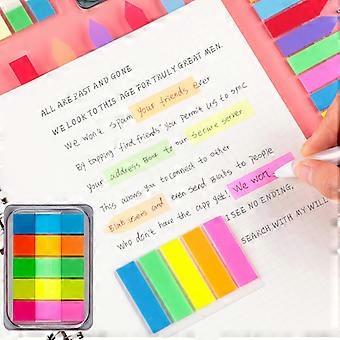 ALL ARE PAST AND GONE
WE LOOK TO THIS AGE FOR TRULY GREAT MEN.
We won't spam your friends ever
By tapping "find friends" you permit us to sync
your address book to our secure server.
This allows you to connect to other
Elab users and even send Boats to people
who don't have the app yet. We won
I SEE NO ENDING,
SEARCH WITH MY WILL